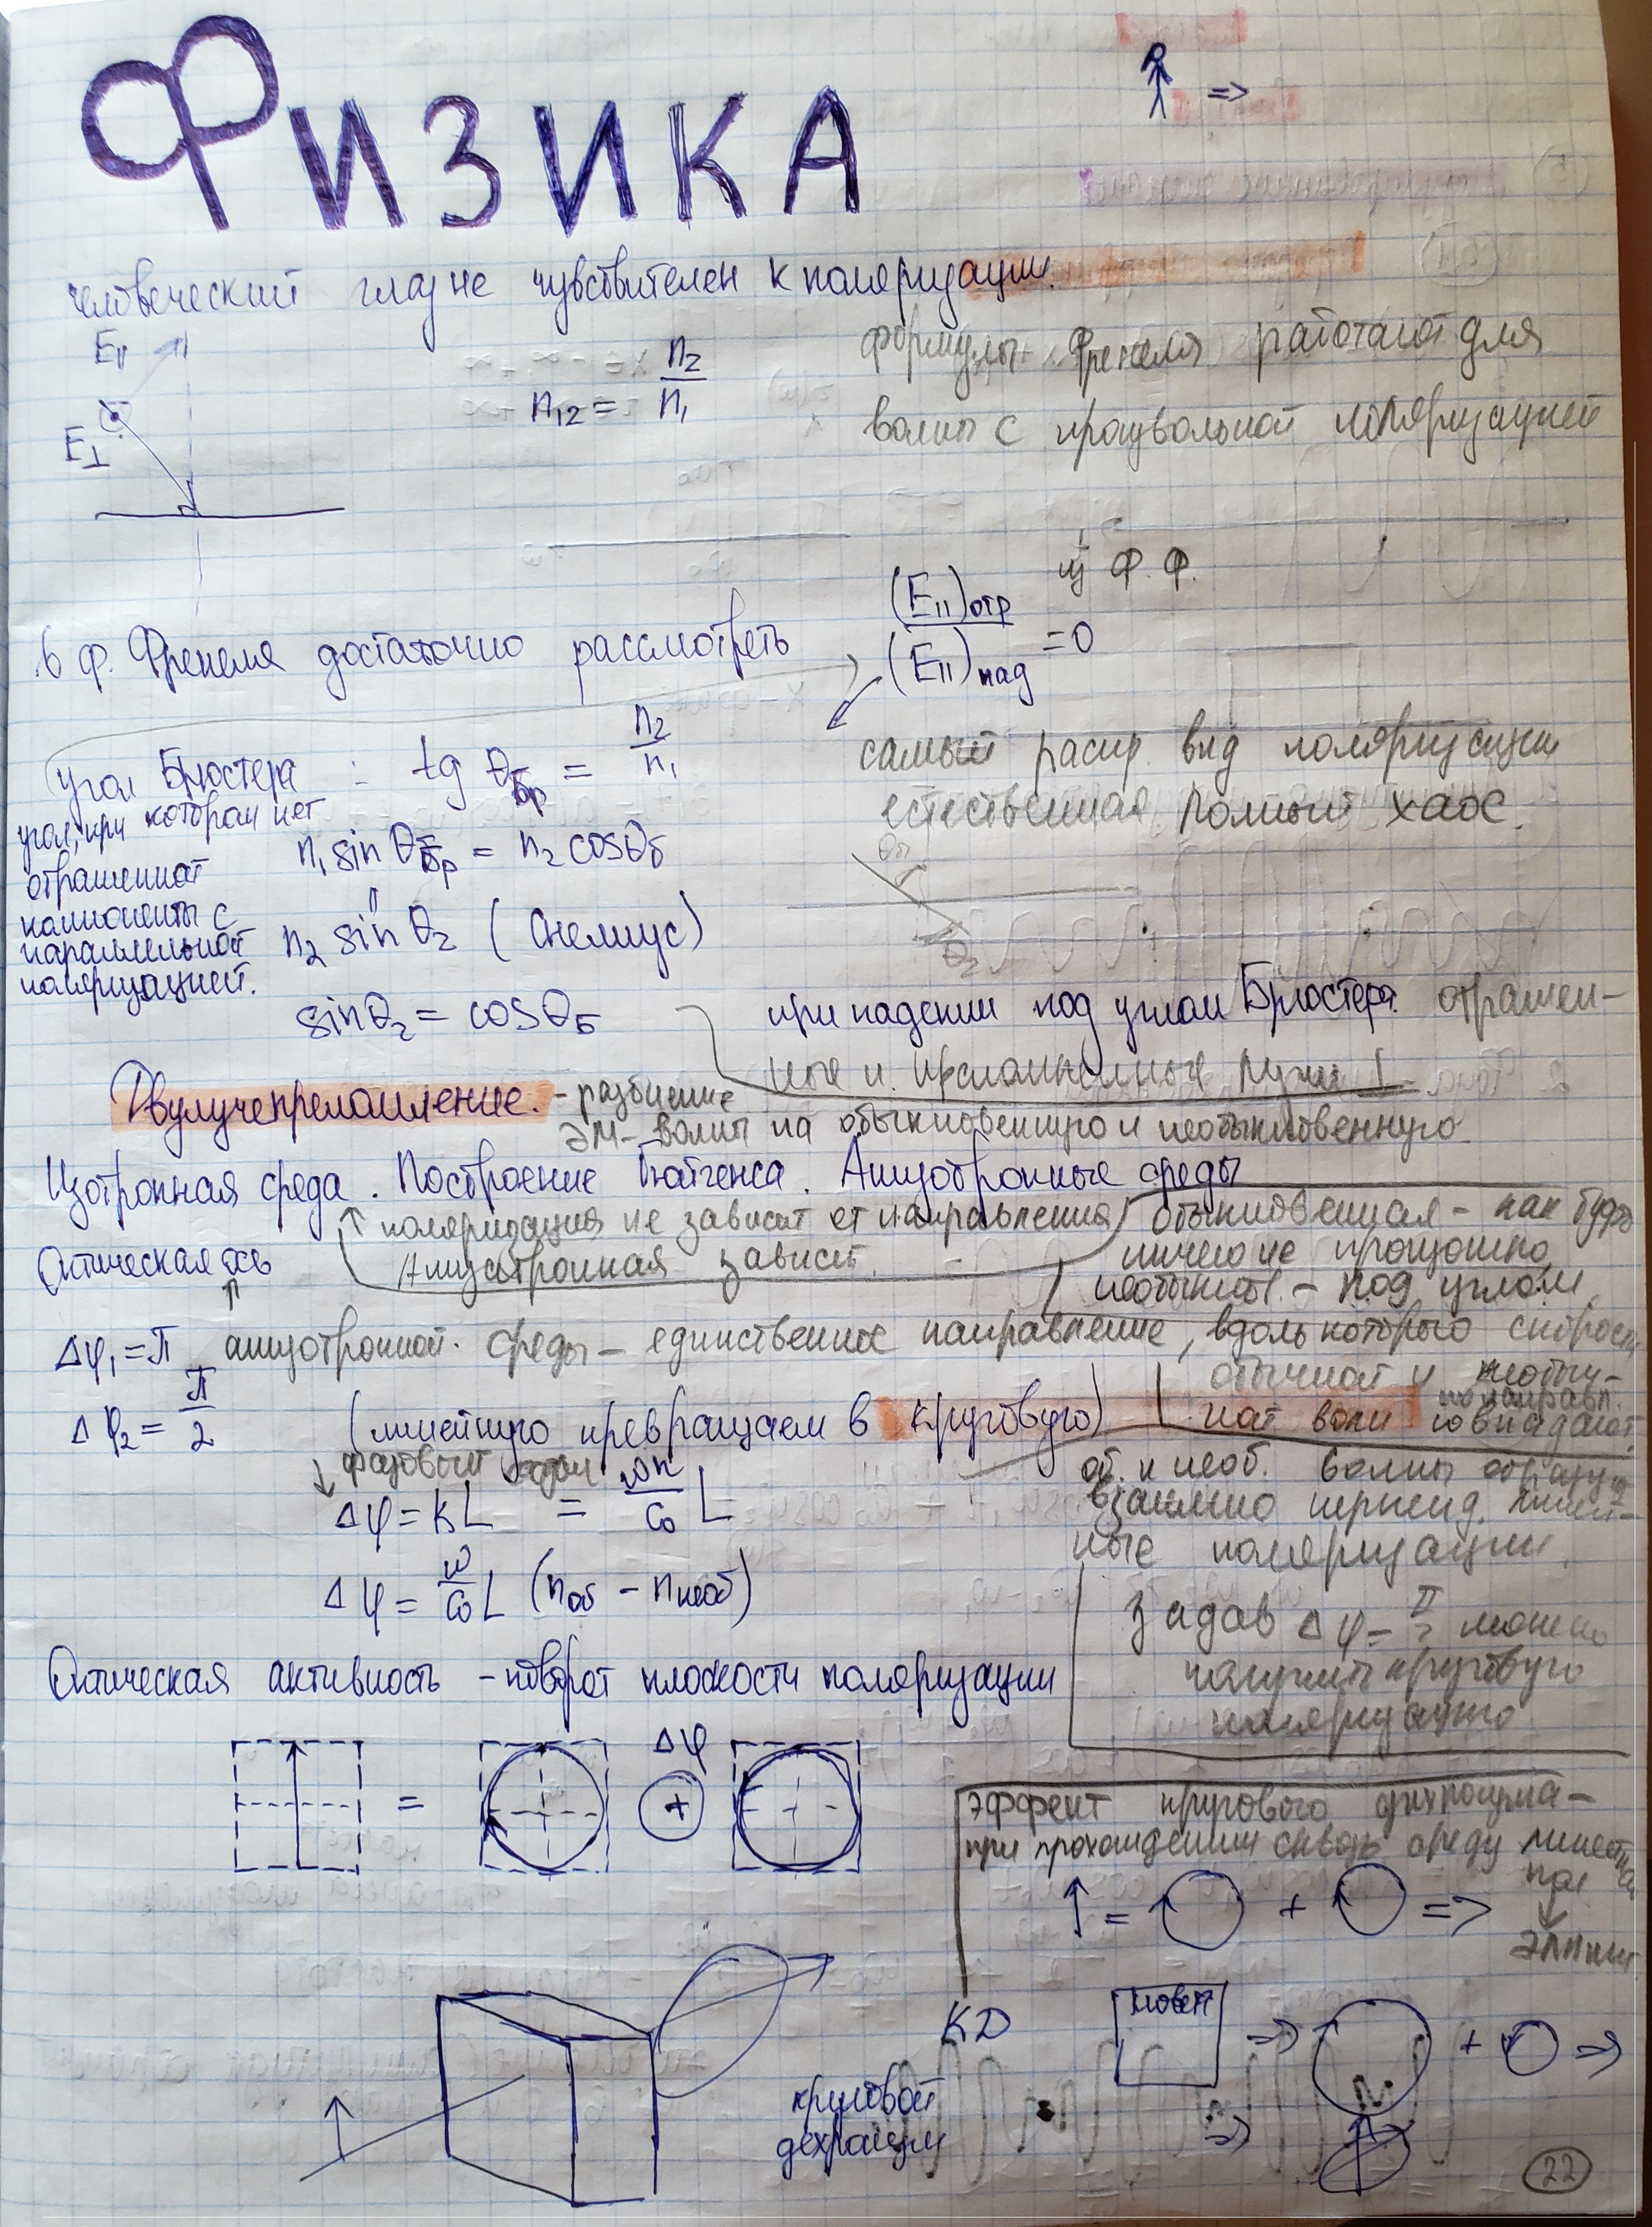 ФИЗИКА
=>
человеческий глаз не чувствителен к поляризации.
E||
E⊥
n₁₂ = n₂/n₁
формулы Френеля работают для
волны с произвольной поляризацией
из Ф.Ф.
в ф. Френеля достаточно рассмотреть
(E||)отр / (E||)пад = 0
угол Брюстера : tg θбр = n₂/n₁
угол, при котором нет
отраженной
компоненты с
параллельной
поляризацией.
n₁ sin θбр = n₂ cos θб
"
n₂ sin θ₂ (Снеллиус)
sin θ₂ = cos θБ
самый распр. вид поляризации
естественная, полный хаос.
θ₂
при падении под углом Брюстера отражен-
ные и преломленные лучи ⊥
Двулучепреломление. - разбиение
ЭМ-волны на обыкновенную и необыкновенную
Изотропная среда. Построение Гюйгенса. Анизотропные среды
поляризация не зависит от направления
Анизотропная зависит.
обыкновенная - как будто
ничего не произошло,
необыкнов. - под углом
Оптическая ось
анизотропной среды - единственное направление, вдоль которого скорости
обычной и необыч-
ной волн по направл. совпадают.
Δφ₁ = π
Δφ₂ = π/2
(линейную превращаем в круговую)
фазовый
Δφ = kL = ωn/c₀ L
Δφ = ω/c₀ L (nоб - nнеоб)
об. и необ. волны образуют
взаимно перпенд. линей-
ные поляризации.
Задав Δφ = π/2 можно
получить круговую
поляризацию
Оптическая активность - поворот плоскости поляризации
= Δφ +
эффект кругового дихроизма -
при прохождении сквозь среду линейная
пол
↓
эллипт.
↑ = + =>
КД
=> + =>
=>
круговой
дехроизм
22